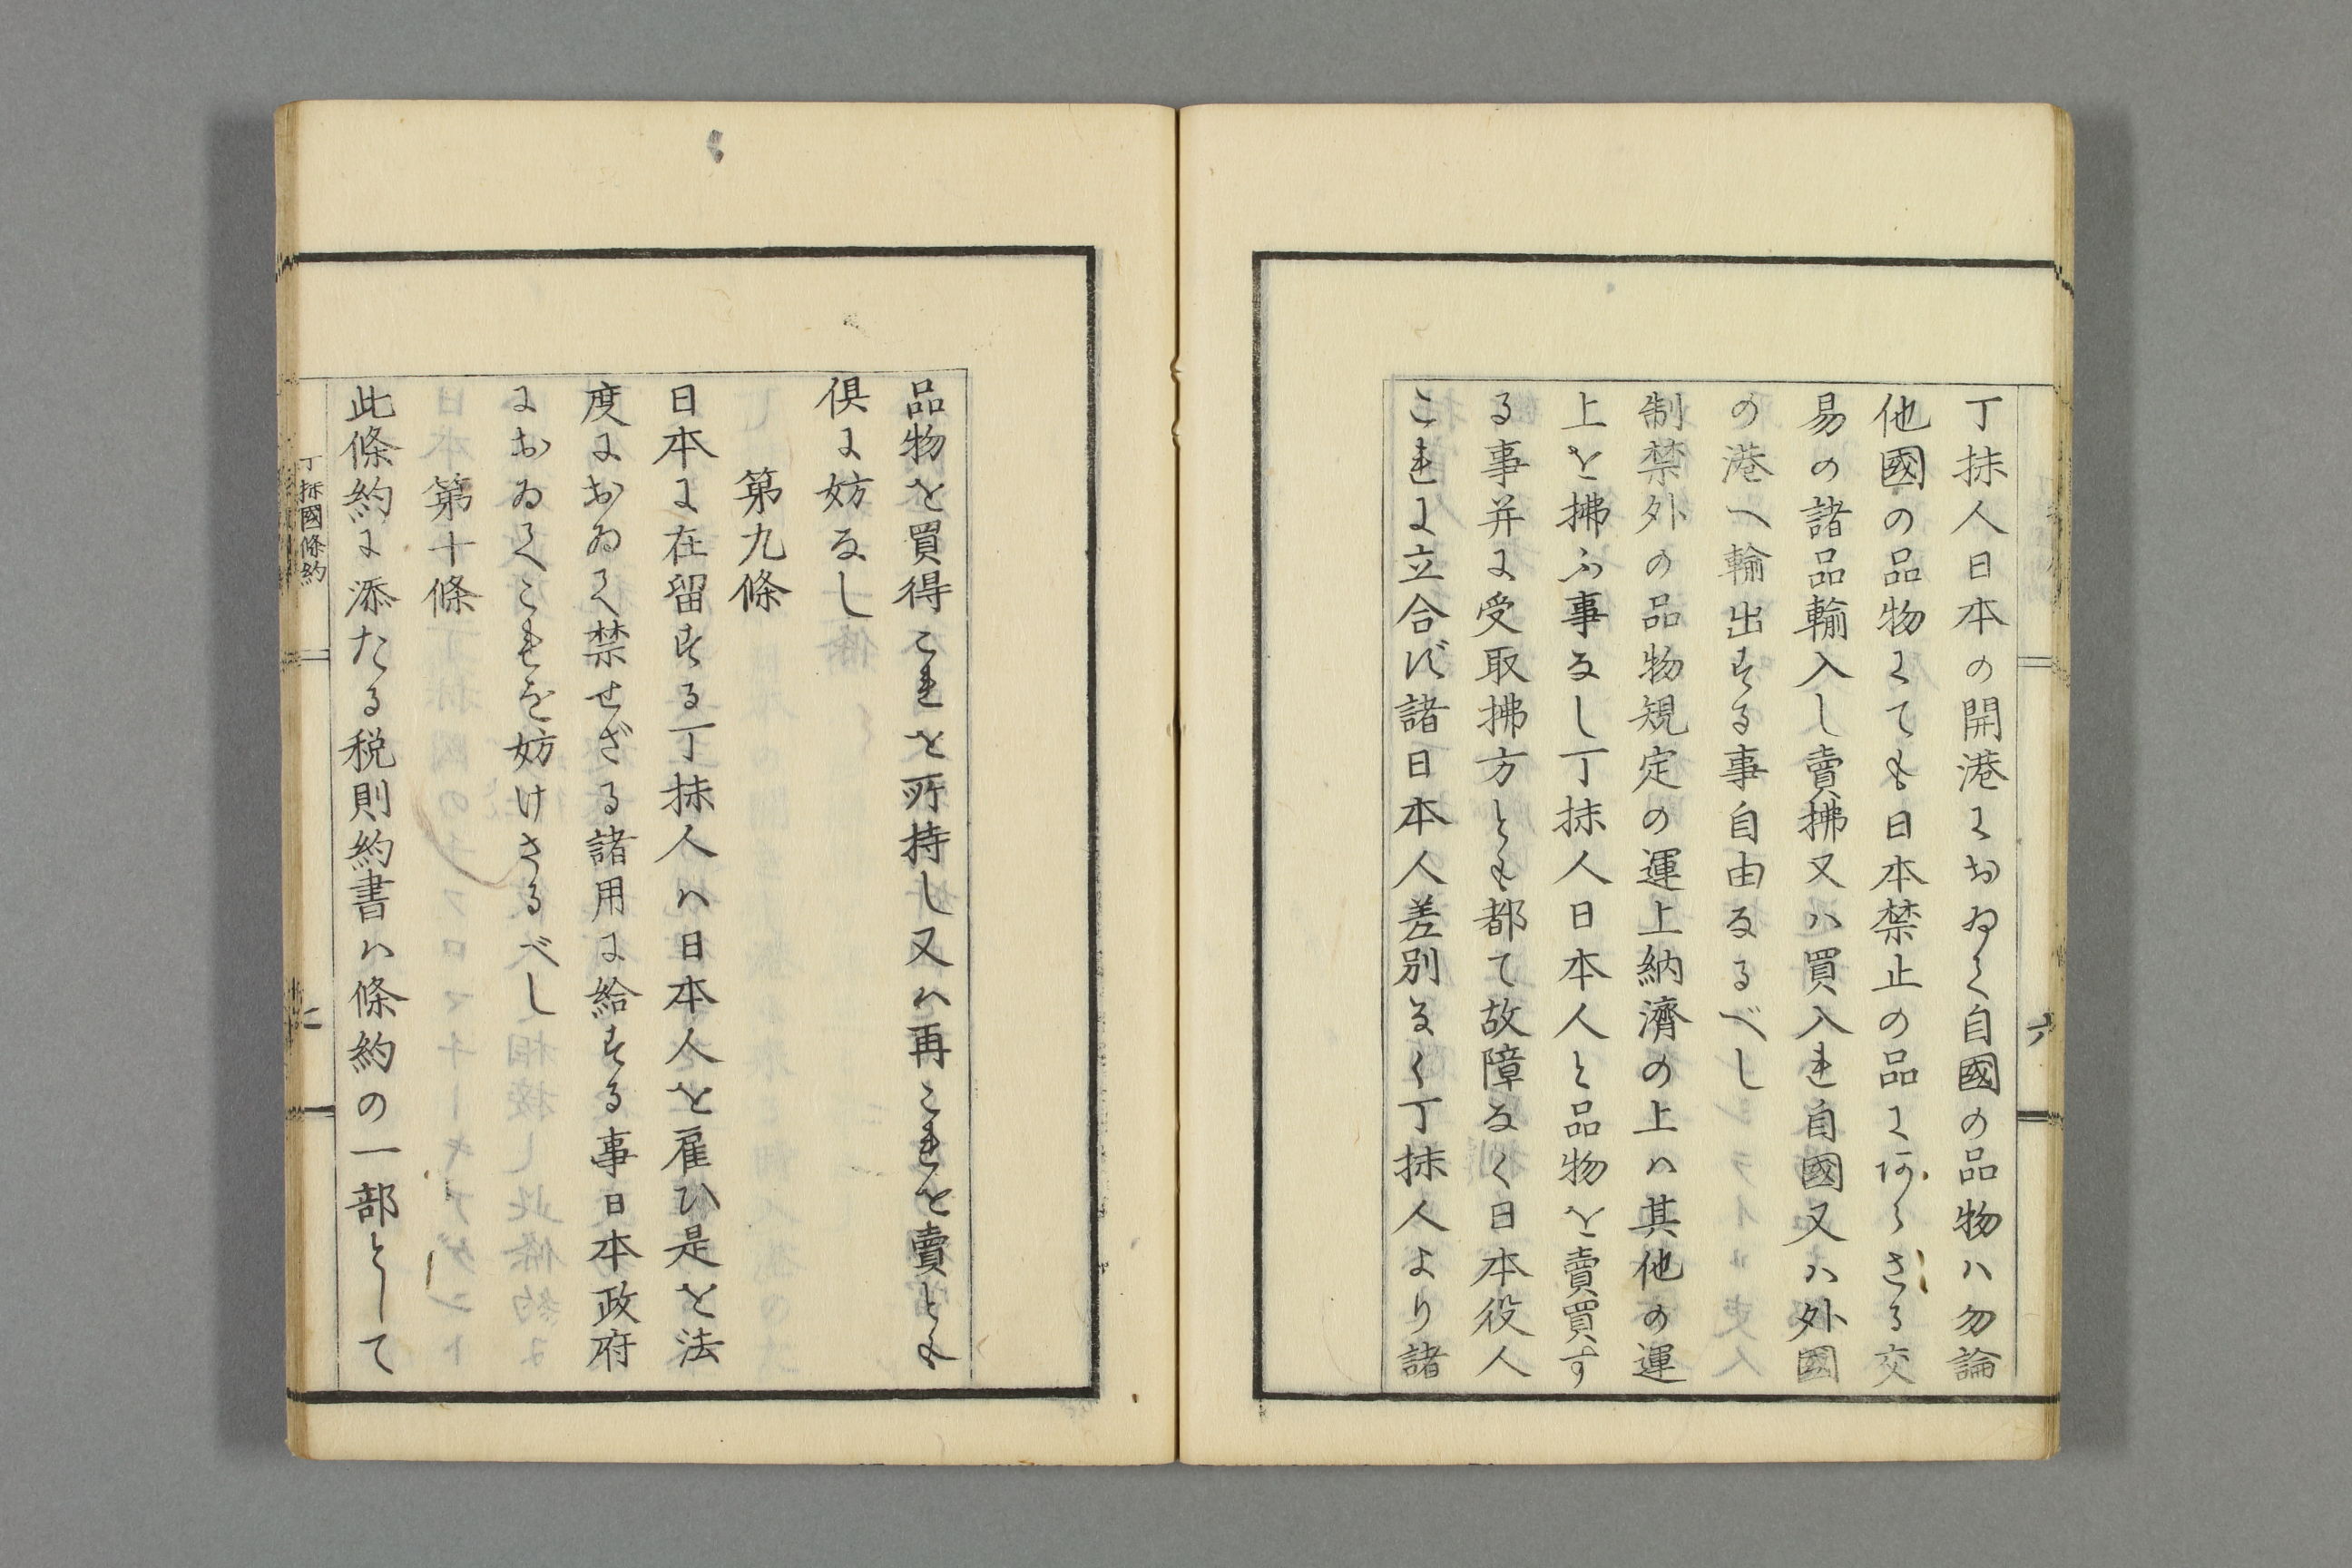 丁抹人日本の開港におゐて自國の品物ハ勿論
他國の品物にても日本禁止の品にあらさる交
易の諸品輸入し賣拂又ハ買入れ自國又ハ外國
の港へ輸出する事自由なるべし
制禁外の品物規定の運上納濟の上ハ其他の運
上を拂ふ事なし丁抹人日本人と品物を賣買す
る事并に受取拂方とも都て故障なく日本役人
これに立合ず諸日本人差別なく丁抹人より諸
六
品物を買得これを所持し又ハ再これを賣とも
倶に妨なし
第九條
日本に在留する丁抹人ハ日本人を雇ひ是を法
度におゐて禁せざる諸用に給する事日本政府
におゐてこれを妨けさるべし
第十條
此條約に添たる税則約書ハ條約の一部として
丁抹國條約